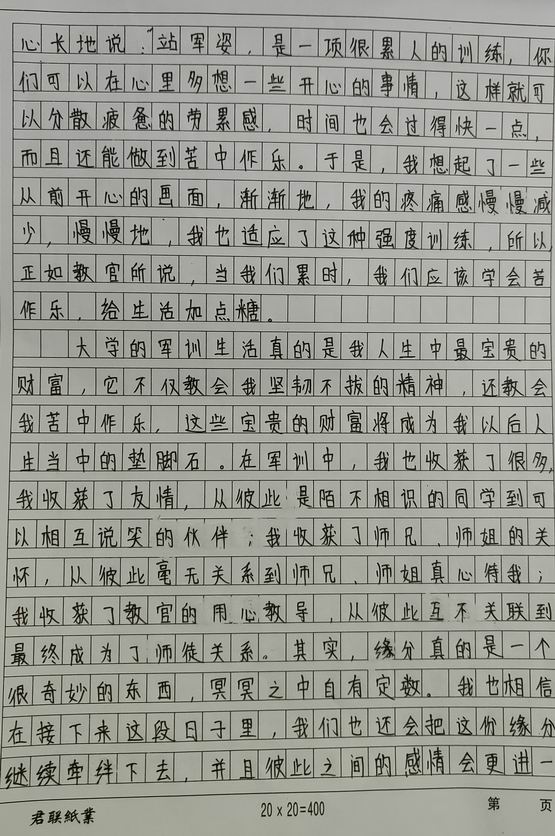 心长地说：“站军姿，是一项很累人的训练，你
们可以在心里多想一些开心的事情，这样就可
以分散疲惫的劳累感，时间也会过得快一点，
而且还能做到苦中作乐。于是，我想起了一些
从前开心的画面，渐渐地，我的疼痛感慢慢减
少，慢慢地，我也适应了这种强度训练，所以，
正如教官所说，当我们累时，我们应该学会苦
作乐，给生活加点糖。
大学的军训生活真的是我人生中最宝贵的
财富，它不仅教会我坚韧不拔的精神，还教会
我苦中作乐，这些宝贵的财富将成为我以后人
生当中的垫脚石。在军训中，我也收获了很多，
我收获了友情，从彼此是陌不相识的同学到可
以相互说笑的伙伴；我收获了师兄、师姐的关
怀，从彼此毫无关系到师兄、师姐真心待我；
我收获了教官的用心教导，从彼此互不关联到
最终成为了师徒关系。其实，缘分真的是一个
很奇妙的东西，冥冥之中自有定数。我也相信
在接下来这段日子里，我们也还会把这份缘分
继续牵绊下去，并且彼此之间的感情会更进一
君联纸业 20×20=400 第 页